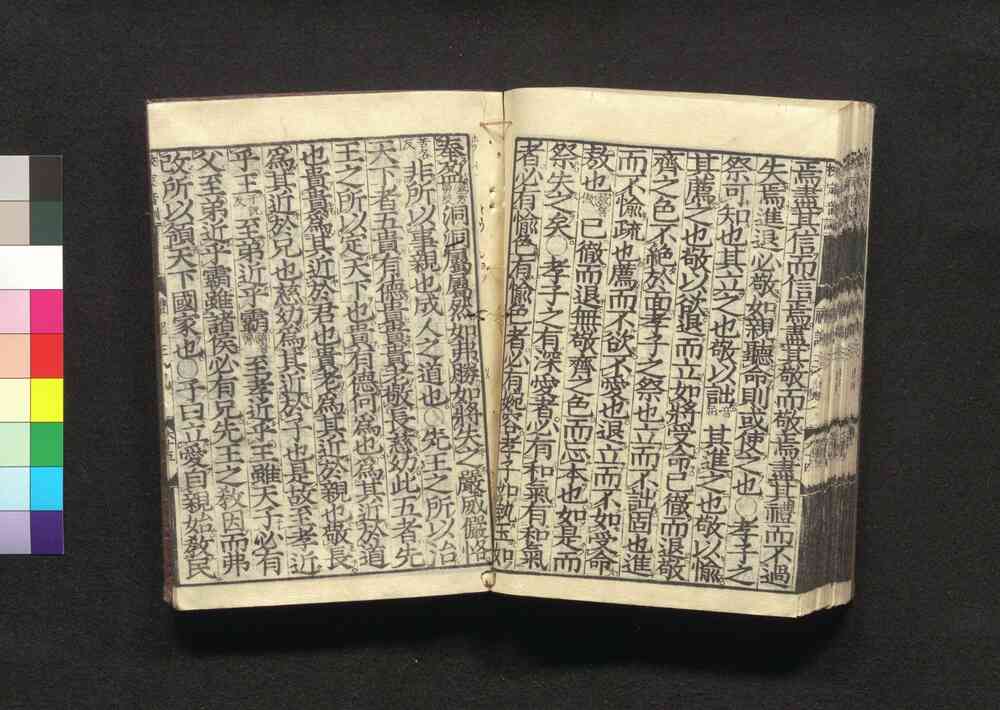 焉盡其信而信焉盡其敬而敬焉盡其禮而不過
失焉進退必敬如親聽命則或使之也○孝子之
祭可知也其立之也敬以詘其進之也敬以愉
其薦之也敬以欲退而立如將受命已徹而退敬
齊之色不絕於面孝子之祭也立而不詘固也進
而不愉疏也薦而不欲不愛也退立而不如受命
敖也已徹而退無敬齊之色而忘本也如是而
祭失之矣○孝子之有深愛者必有和氣有和氣
者必有愉色有愉色者必有婉容孝子如執玉如
奉盈洞洞屬屬然如弗勝如將失之嚴威儼恪
非所以事親也成人之道也○先王之所以治
天下者五貴有德貴貴貴老敬長慈幼此五者先
王之所以定天下也貴有德何爲也爲其近於道
也貴貴爲其近於君也貴老爲其近於親也敬長
爲其近於兄也慈幼爲其近於子也是故至孝近
乎王至弟近乎霸至孝近乎王雖天子必有
父至弟近乎霸雖諸侯必有兄先王之教因而弗
改所以領天下國家也○子曰立愛自親始教民